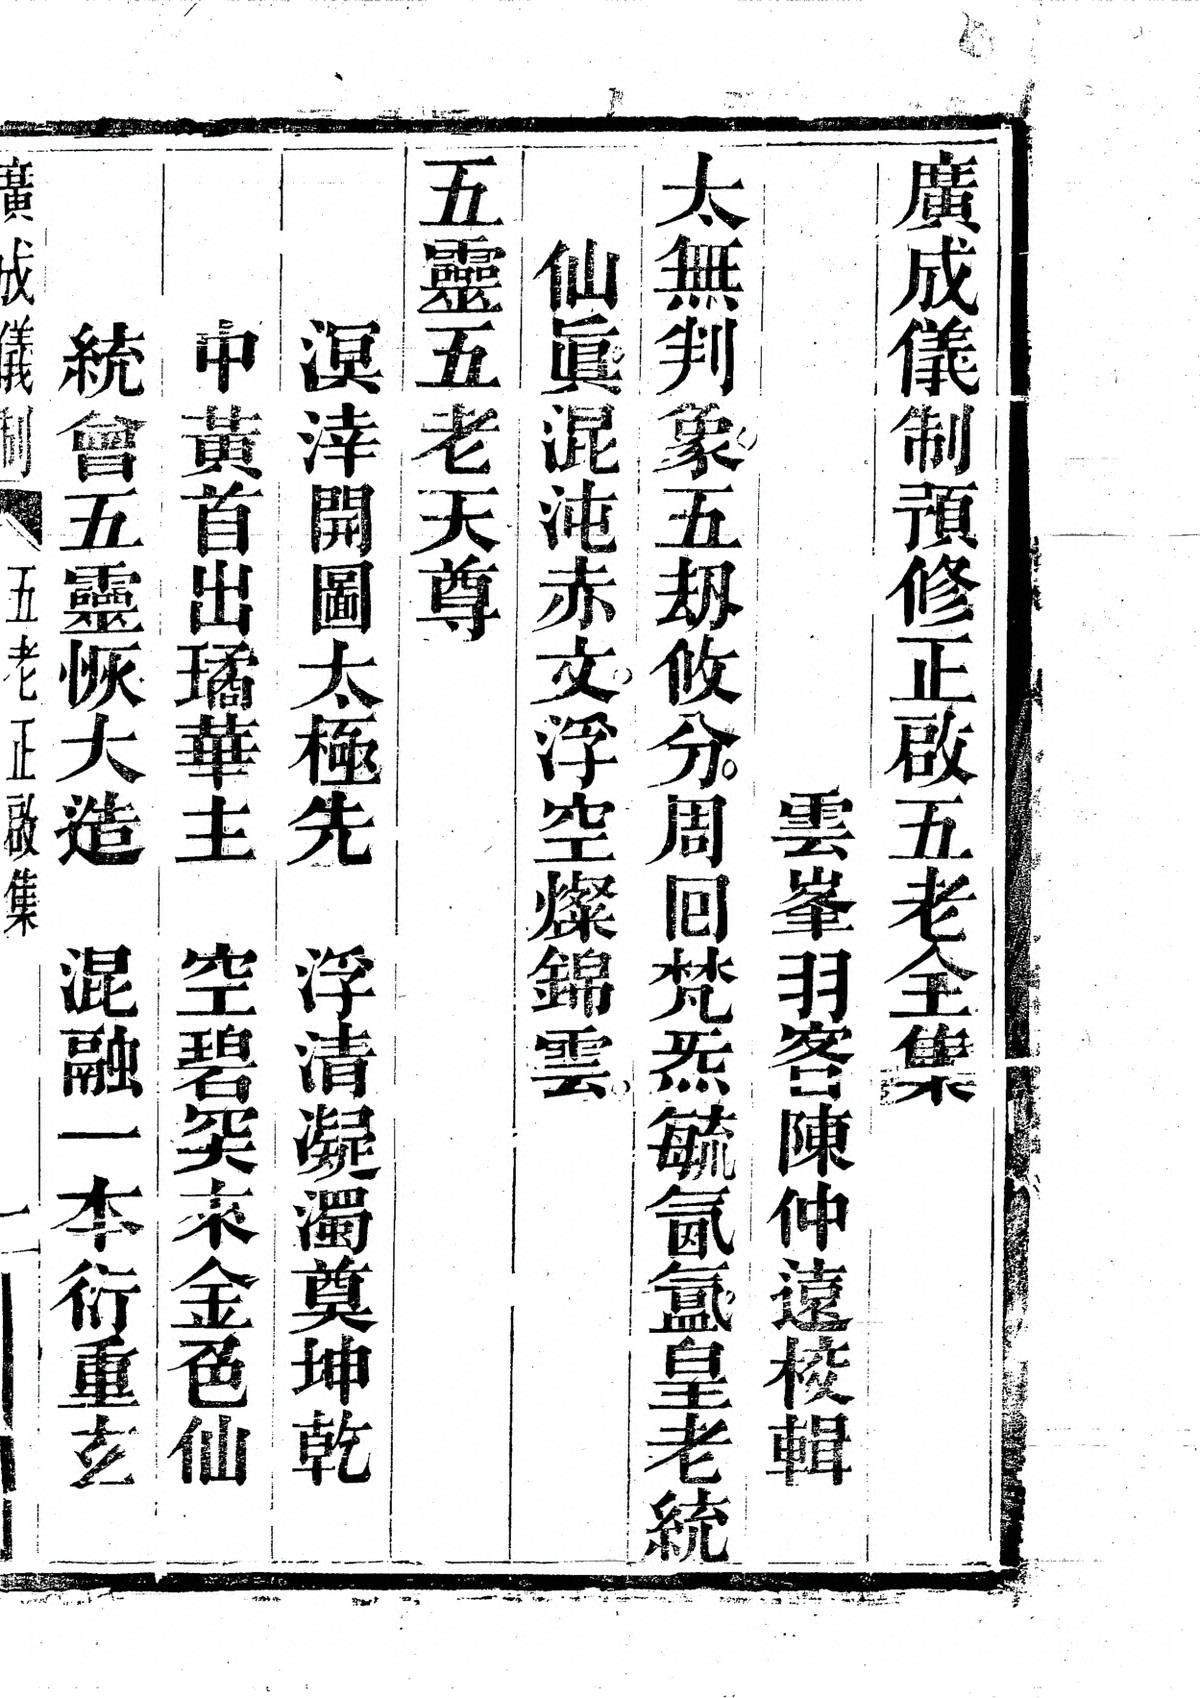 廣成儀制預修正啟五老全集
雲峯羽客陳仲遠校輯
太無判象五劫攸分。周回梵炁毓氤氳皇老統
仙眞混沌赤文。浮空燦錦雲。
五靈五老天尊
溟涬開圖太極先　浮清凝濁奠坤乾
中黃首出璚華主　空碧突來金色仙
統會五靈恢大造　混融一本衍重玄
廣成儀制　五老正啟集　一